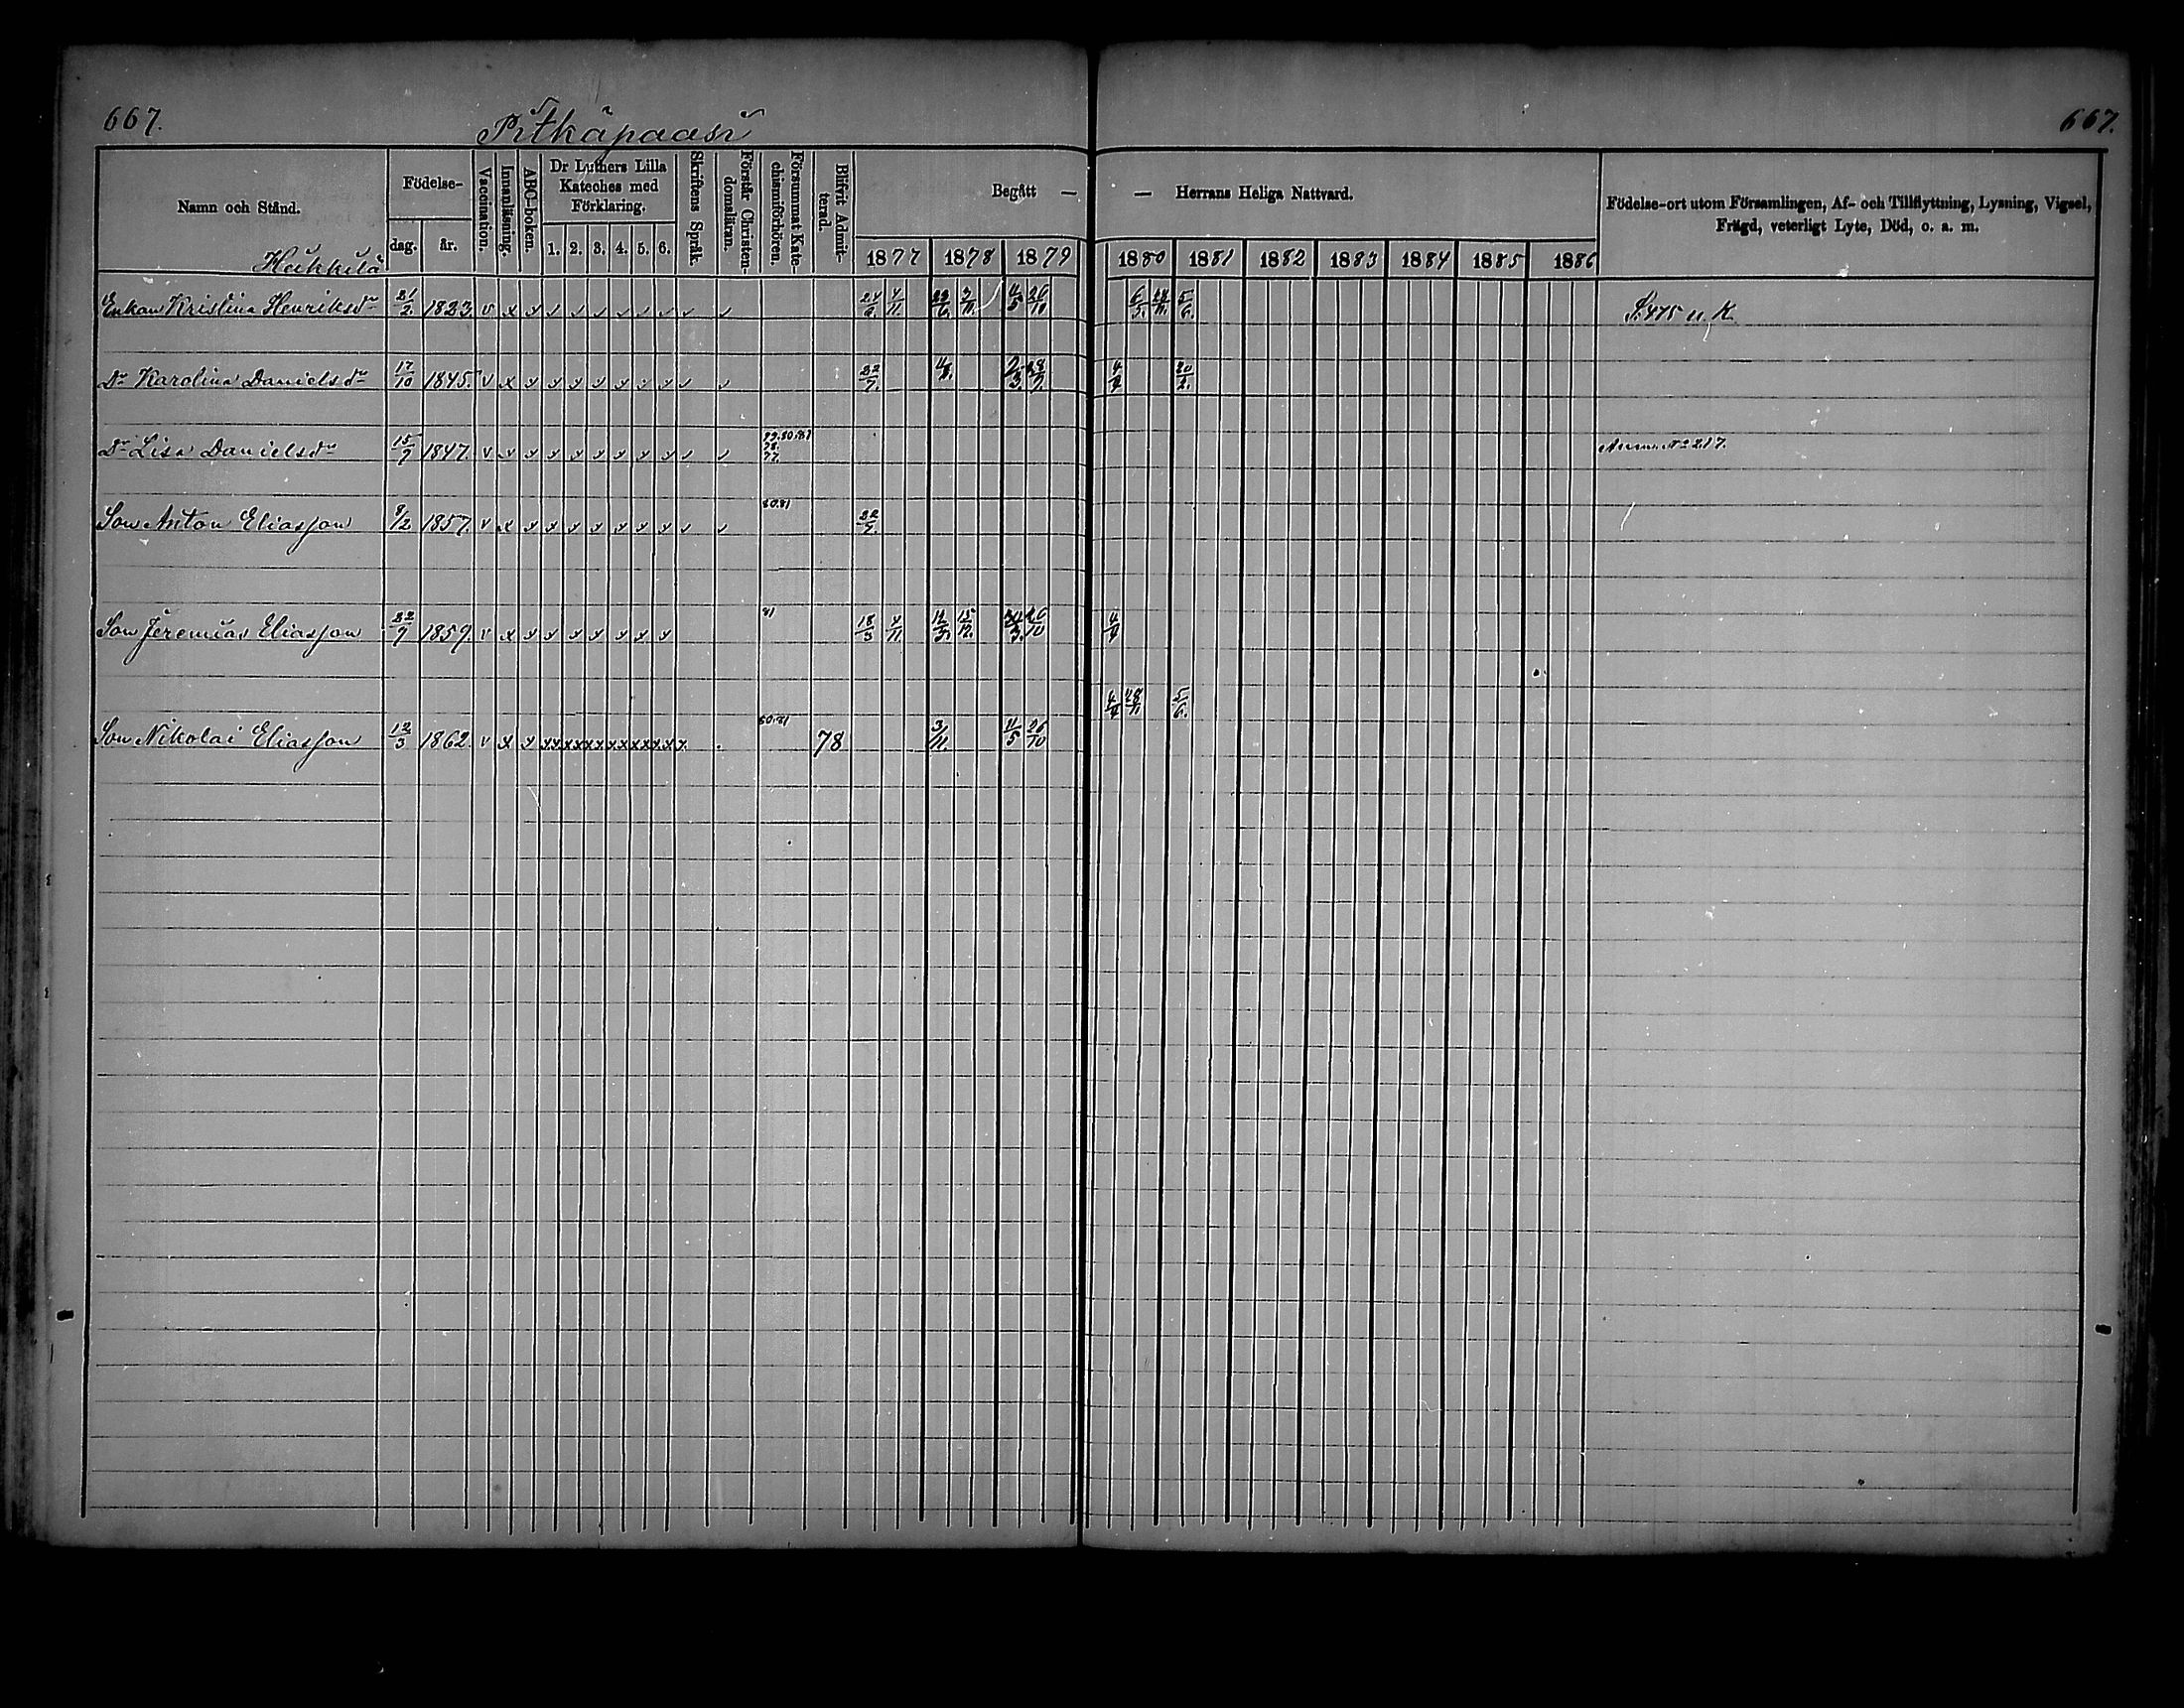 667.
Pitkäpaasi
667.
Namn och Stånd.
Födelse-
dag.
år.
Vaccination.
Innanläsning.
ABC-boken.
Dr Luthers Lilla Kateches med Förklaring.
1. 2. 3. 4. 5. 6.
Skriftens Språk.
Förstår Christen-domsläran.
Försummat Kate-chismiförhören.
Blifvit Admit-terad.
Begått — — Herrans Heliga Nattvard.
1877 1878 1879 1880 1881 1882 1883 1884 1885 1886
Födelse-ort utom Församlingen, Af- och Tillflyttning, Lysning, Vigsel,
Frägd, veterligt Lyte, Död, o. a. m.
Heikkilä
Enkan Kristina Henriksdr 21/2 1823. v x x 24/6. 4/11. 3/11. 4/5 26/10 6/5. 28/11. 5/6. S. 475 u. K.
Dr Karolina Danielsdr 17/10 1845. v x x 22/7. 4/4 20/2.
Dr Lisa Danielsdr 15/7 1847. v x x 79.80.81 78. 77. Anm. No 217.
Son Anton Eliasson 8/2 1857. v x x 80.81 22/7.
Son Jeremias Eliasson 22/7 1859. v x x 81 18/3 4/11. 12/3. 15/12. 26/10 4/4
4/4 28/11. 5/6.
Son Nikolai Eliasson 12/3 1862. v x x xx xx xx xx xx xx x. 80.81 78 3/11. 4/5 26/10